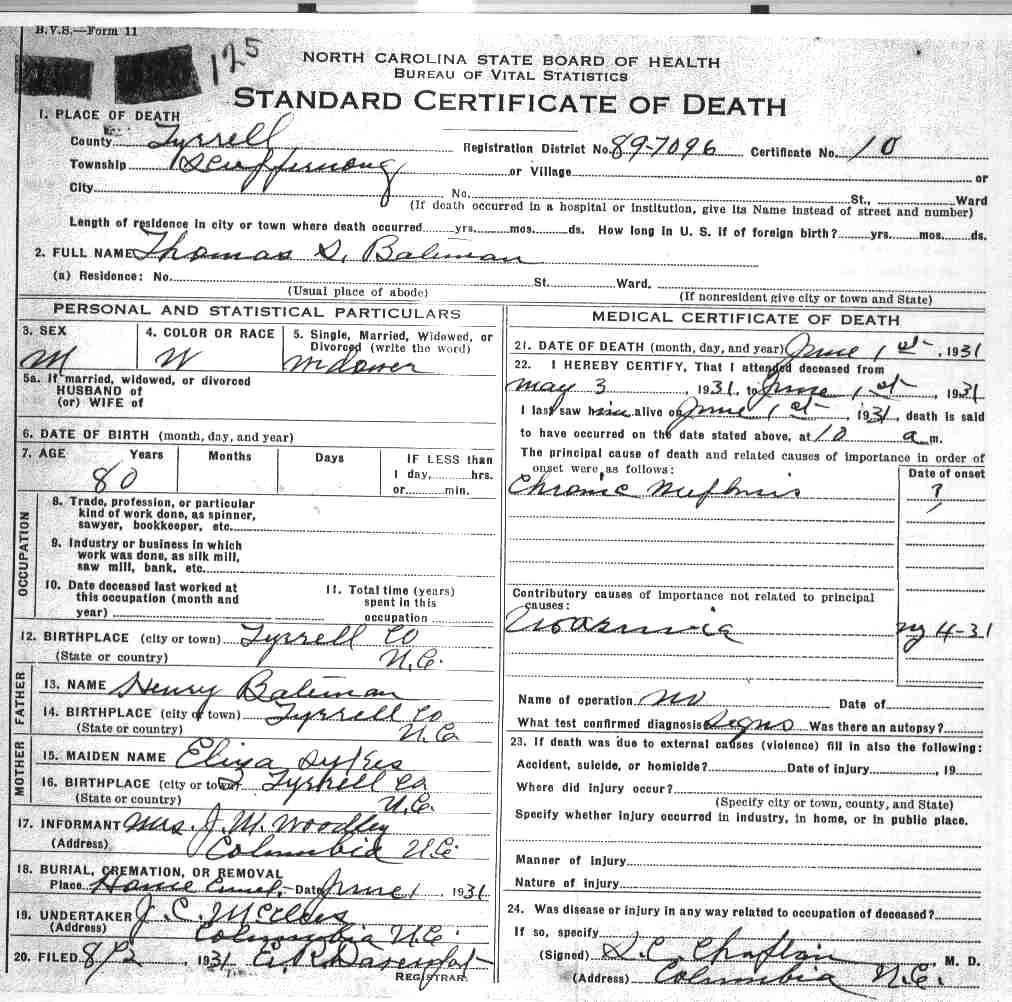 B.V.S.—Form 11
125
NORTH CAROLINA STATE BOARD OF HEALTH
BUREAU OF VITAL STATISTICS
STANDARD CERTIFICATE OF DEATH
1. PLACE OF DEATH
County Tyrrell Registration District No. 89-7096 Certificate No. 10
Township Scuppernong or Village or
City No. St., Ward
(If death occurred in a hospital or institution, give its Name instead of street and number)
Length of residence in city or town where death occurred yrs. mos. ds. How long in U. S. if of foreign birth? yrs. mos. ds.
2. FULL NAME Thomas S. Bateman
(a) Residence: No. St. Ward.
(Usual place of abode) (If nonresident give city or town and State)
PERSONAL AND STATISTICAL PARTICULARS
3. SEX 4. COLOR OR RACE 5. Single, Married, Widowed, or
Divorced (write the word)
M W Widower
5a. If married, widowed, or divorced
HUSBAND of
(or) WIFE of
6. DATE OF BIRTH (month, day, and year)
7. AGE Years Months Days IF LESS than
1 day, hrs.
80 or min.
OCCUPATION
8. Trade, profession, or particular
kind of work done, as spinner,
sawyer, bookkeeper, etc.
9. Industry or business in which
work was done, as silk mill,
saw mill, bank, etc.
10. Date deceased last worked at
this occupation (month and
year)
11. Total time (years)
spent in this
occupation
12. BIRTHPLACE (city or town) Tyrrell Co
(State or country) N.C.
FATHER
13. NAME Henry Bateman
14. BIRTHPLACE (city or town) Tyrrell Co
(State or country) N.C.
MOTHER
15. MAIDEN NAME Eliza Sykes
16. BIRTHPLACE (city or town) Tyrrell Co
(State or country) N.C.
17. INFORMANT Mrs. J. M. Woodley
(Address) Columbia N.C.
18. BURIAL, CREMATION, OR REMOVAL
Place Home Date June 1 1931
19. UNDERTAKER J. C.
(Address) Columbia N.C.
20. FILED 8/2 1931 Davenport
REGISTRAR.
MEDICAL CERTIFICATE OF DEATH
21. DATE OF DEATH (month, day, and year) June 1st, 1931
22. I HEREBY CERTIFY, That I attended deceased from
May 3 1931, to June 1st, 1931
I last saw him alive on June 1st, 1931, death is said
to have occurred on the date stated above, at 10 a m.
The principal cause of death and related causes of importance in order of
onset were as follows: Date of onset
Chronic Nephritis ?
Contributory causes of importance not related to principal
causes:
4-31
Name of operation no Date of
What test confirmed diagnosis Signs Was there an autopsy?
23. If death was due to external causes (violence) fill in also the following:
Accident, suicide, or homicide? Date of injury , 19
Where did injury occur?
(Specify city or town, county, and State)
Specify whether injury occurred in industry, in home, or in public place.
Manner of injury
Nature of injury
24. Was disease or injury in any way related to occupation of deceased?
If so, specify
(Signed) S.C. Chaplain M. D.
(Address) Columbia N.C.